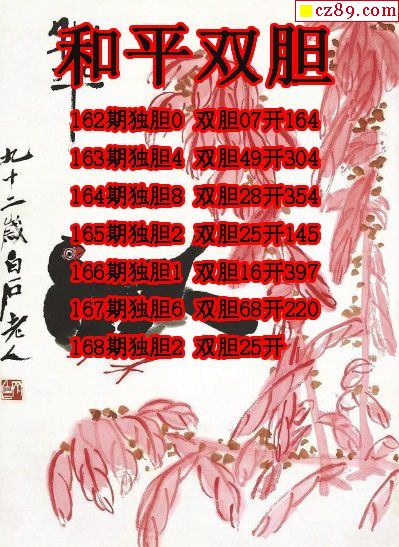 cz89.com
和平双胆
162期独胆0 双胆07开164
163期独胆4 双胆49开304
164期独胆8 双胆28开354
165期独胆2 双胆25开145
166期独胆1 双胆16开397
167期独胆6 双胆68开220
168期独胆2 双胆25开
九十二岁白石老人